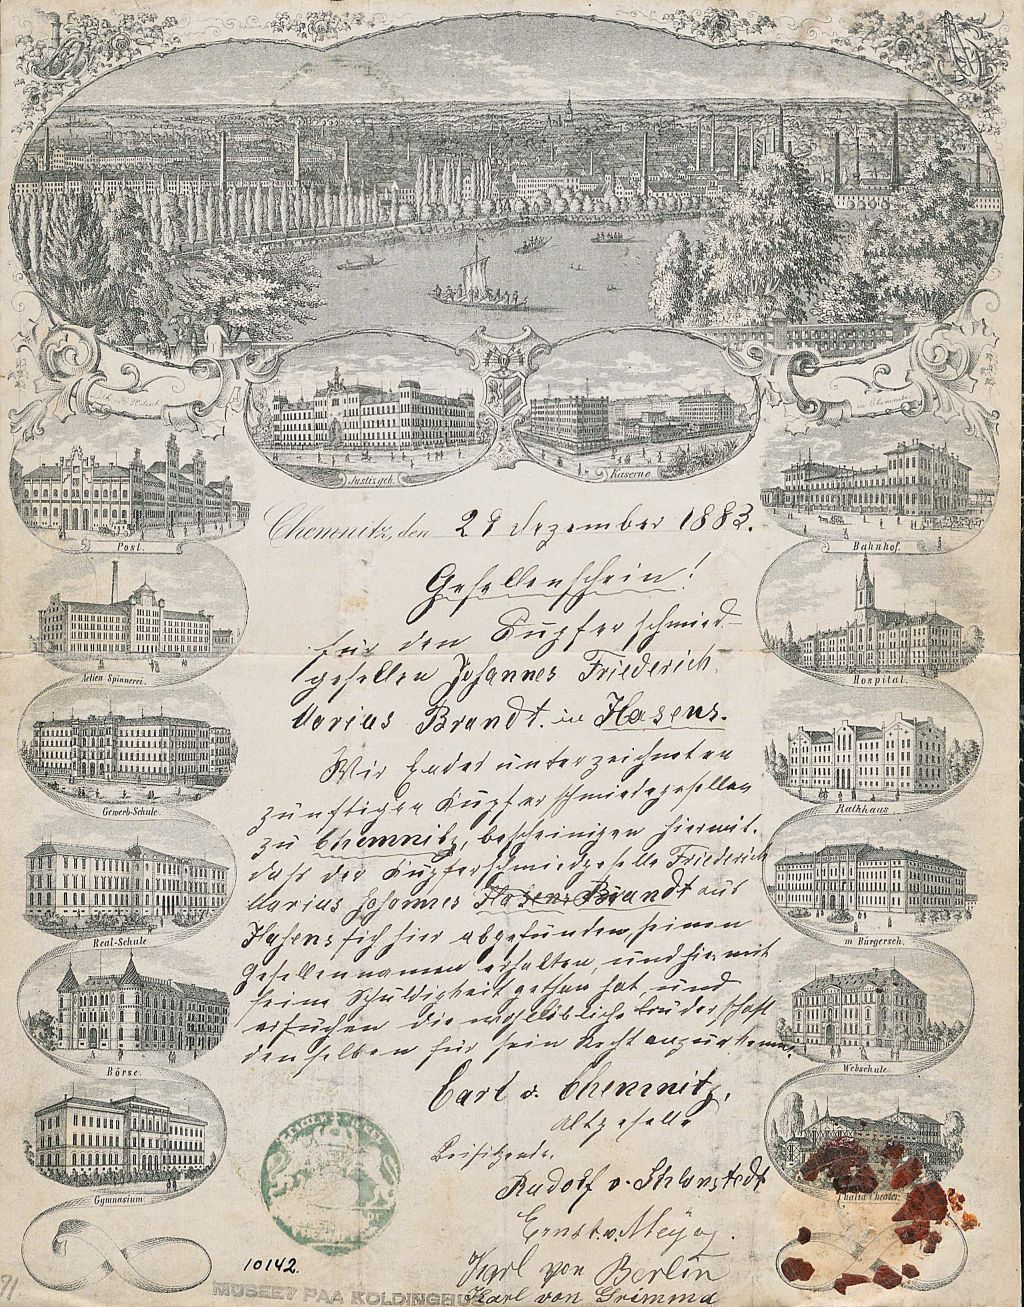 Justizgeb.
Kaserne
Post.
Bahnhof.
Actien Spinnerei.
Hospital.
Gewerb-Schule.
Rathhaus
Real-Schule
m Bürgersch.
Börse.
Webschule.
Gymnasium
Thalia Theater.
Chemnitz, den 29 Dezember 1883.
Gesellenschein!
für den Kupferschmied-
gesellen Johannes Friederich
Marius Brandt. in Hasens.
Wir Endes unterzeichneten
zünftigen Kupferschmiedegesellen
zu Chemnitz, bescheinigen hiermit.
daß der Kupferschmiedgeselle Friederich
Marius Johannes Hasens Brandt aus
Hasens sich hier abgefunden, seinen
Gesellennamen erhalten, und hiermit
seine Schuldigkeit gethan hat, und
ersuchen die wohllöbliche Brüderschaft
denselben für sein Recht anzuerkennen.
Carl v. Chemnitz,
Altgeselle
Beisitzende.
Rudolf v.
Ernst v.
Karl von Berlin
Karl von Grimma
10142.
MUSEET PAA KOLDINGHUS